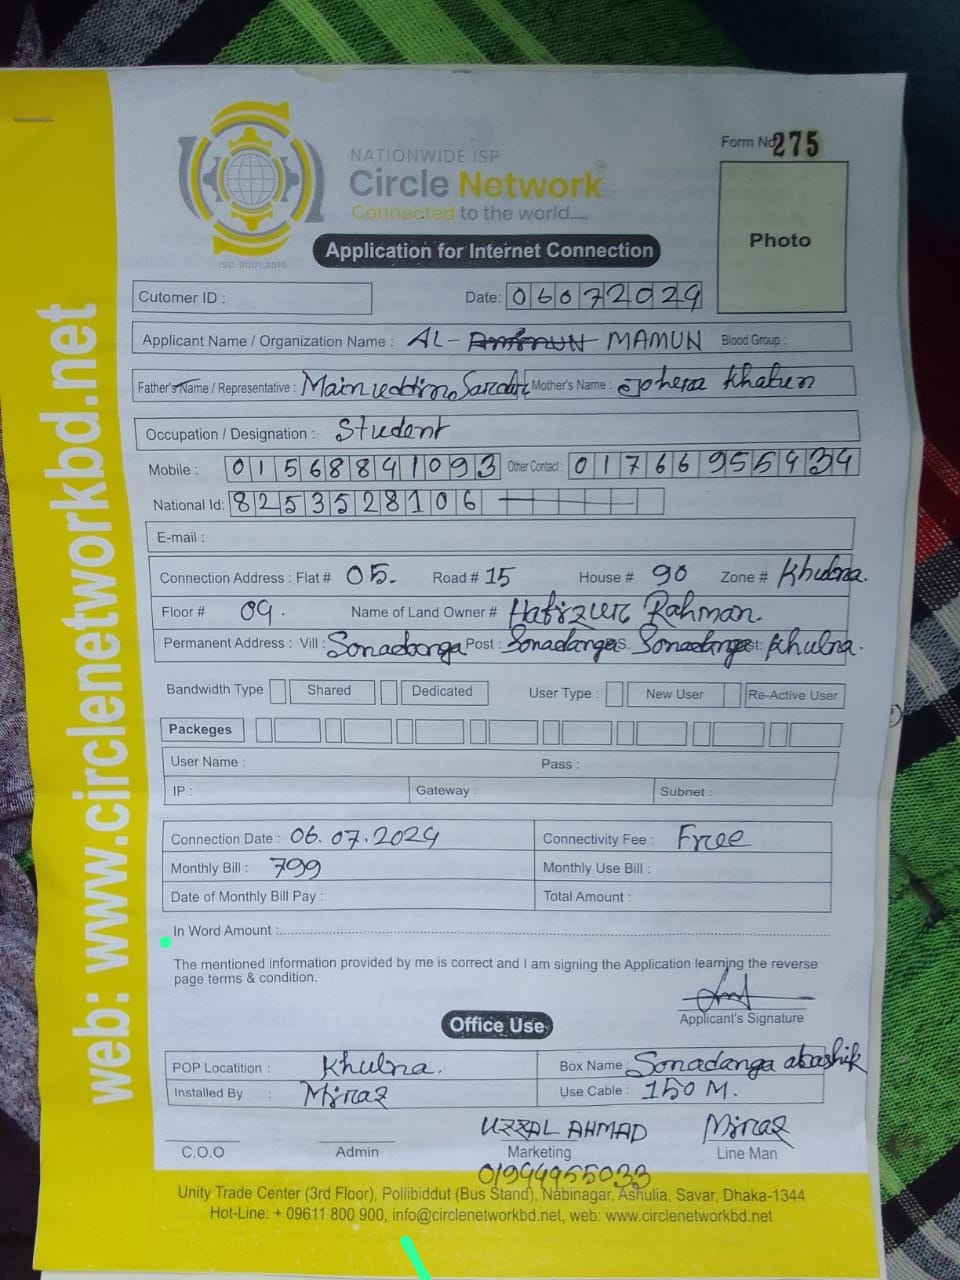 Form No 275
NATIONWIDE ISP
Circle Network
Connected to the world.....
ISO 9001:2015
Application for Internet Connection
Photo
Cutomer ID :
Date: 06072024
Applicant Name / Organization Name : AL- MAMUN Blood Group :
Father's Name / Representative : Main uddin Sardar Mother's Name : Johera Khatun
Occupation / Designation : Student
Mobile : 01568841093 Other Contact : 01766955434
National Id: 8253528106
E-mail :
Connection Address : Flat # 05. Road # 15 House # 90 Zone # Khulna.
Floor # 04. Name of Land Owner # Hafizur Rahman.
Permanent Address : Vill : Sonadanga Post : Sonadanga S. Sonadanga st: Khulna.
Bandwidth Type Shared Dedicated User Type : New User Re-Active User
Packeges
User Name : Pass :
IP : Gateway : Subnet :
Connection Date : 06.07.2024 Connectivity Fee : Free
Monthly Bill : 799 Monthly Use Bill :
Date of Monthly Bill Pay : Total Amount :
In Word Amount :
The mentioned information provided by me is correct and I am signing the Application learning the reverse
page terms & condition.
Applicant's Signature
Office Use
POP Locatition : Khulna. Box Name : Sonadanga abashik
Installed By : Miraz Use Cable : 150 M.
UZZAL AHMAD Miraz
C.O.O Admin Marketing Line Man
01944955033
Unity Trade Center (3rd Floor), Pollibiddut (Bus Stand), Nabinagar, Ashulia, Savar, Dhaka-1344
Hot-Line: + 09611 800 900, info@circlenetworkbd.net, web: www.circlenetworkbd.net
web: www.circlenetworkbd.net